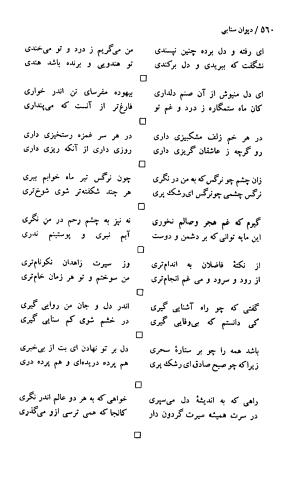 ۵۶۰ / دیوان سنایی
ای رفته و دل برده چنین نپسندی من می‌گریم ز درد و تو می‌خندی
نشگفت که ببریدی و دل برکندی تو هندویی و برنده باشد هندی
ای دل منیوش از آن صنم دلداری بیهوده مفرسای تن اندر خواری
کان ماه ستمگاره ز درد و غم تو فارغ‌تر از آنست که می‌پنداری
در هر خم زلف مشکبیزی داری در هر سر غمزه رستخیزی داری
رو گرچه ز عاشقان گریزی داری روزی داری از آنکه ریزی داری
زان چشم چو نرگس که به من در نگری چون نرگس تیر ماه خوابم ببری
نرگس چشمی چو نرگس ای رشک پری هر چند شکفته‌تر شوی شوخ‌تری
گیرم که غم هجر وصالم نخوری نه نیز به چشم رحم در من نگری
این مایه توانی که بر دشمن و دوست آبم نبری و پوستینم ندری
از نکتهٔ فاضلان به اندام‌تری وز سیرت زاهدان نکونام‌تری
از رود و سرود و می غم انجام‌تری من سوختم و تو هر زمان خام‌تری
گفتی که چو راه آشنایی گیری اندر دل و جان من روایی گیری
کی دانستم که بی‌وفایی گیری در خشم شوی کم سنایی گیری
باشد همه را چو بر ستارهٔ سحری دل بر تو نهادن ای بت از بی‌خبری
زیرا که چو صبح صادق ای رشک پری هم پرده دریده‌ای و هم پرده دری
راهی که به اندیشهٔ دل می‌سپری خواهی که به هر دو عالم اندر نگری
در سرت همیشه سیرت گردون دار کانجا که همی ترسی ازو می‌گذری